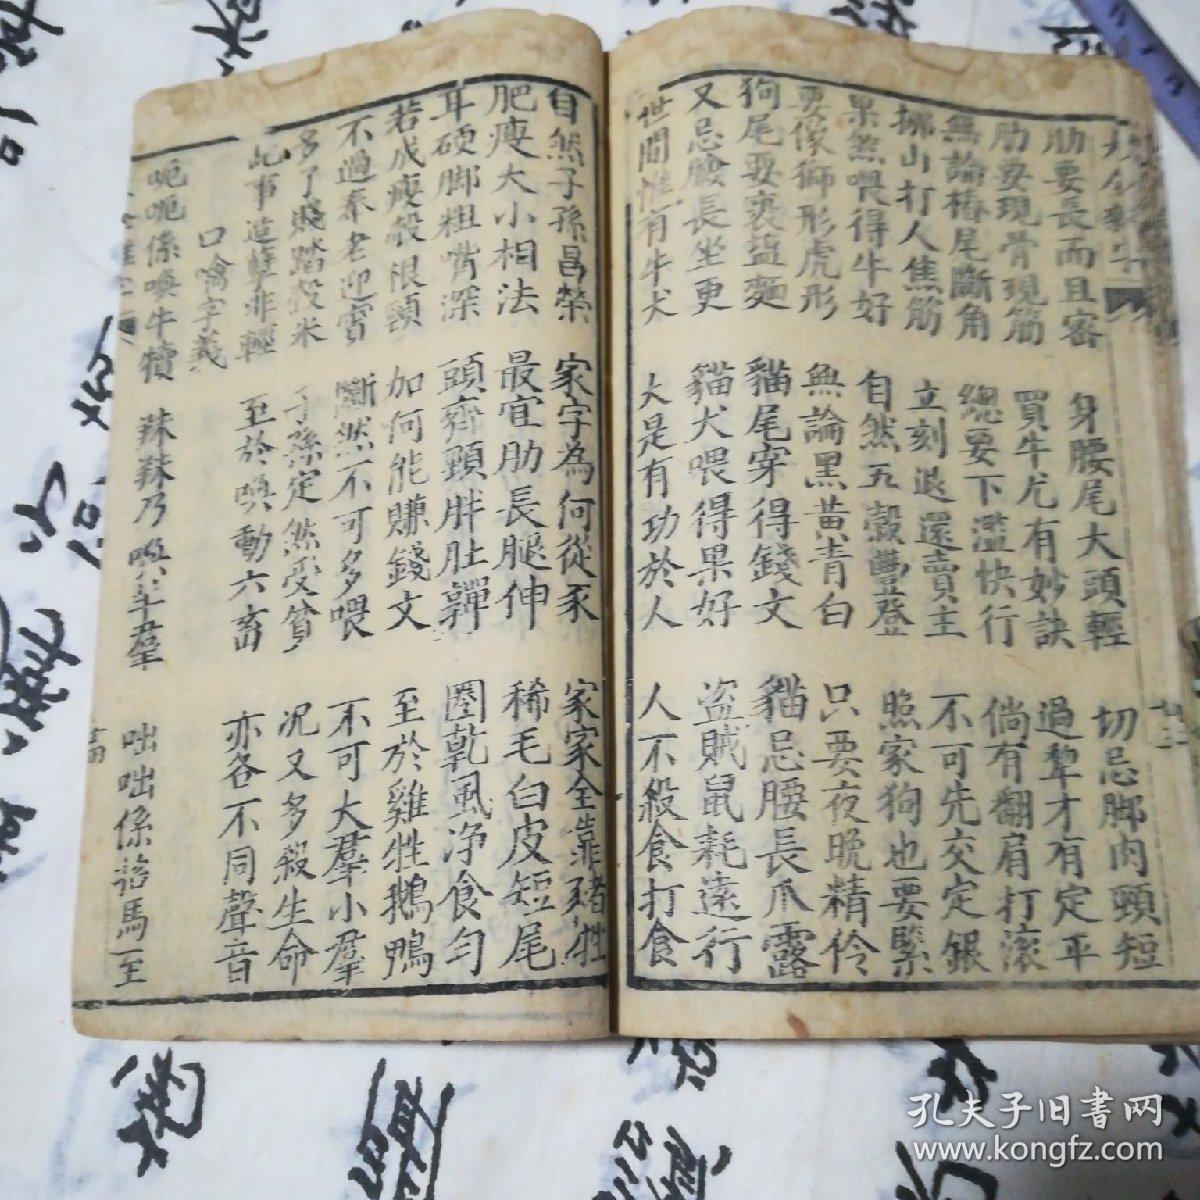 肋要長而且密 身腰尾大頭輕 切忌脚肉頸短
肋要現骨現筋 買牛尤有妙訣 過犂才有定平
無論樁尾斷角 總要下濫快行 倘有翻肩打滚
挷山打人焦筋 立刻退還賣主 不可先交定銀
果然喂得牛好 自然五榖豐登 照家狗也要緊
要像獅形虎形 無論黑黃青白 只要夜晚精伶
狗尾要裹盐麵 貓尾穿得錢文 貓忌腰長爪露
又忌腰長坐更 貓犬喂得果好 盗賊鼠耗遠行
世間惟有牛犬 大是有功於人 人不殺食打食
自然子孫昌榮 家字為何從豕 家家全靠豬牲
肥瘦大小相法 最宜肋長腿伸 稀毛白皮短尾
耳硬脚粗嘴深 頭齊頸胖肚軃 圈乾風净食勻
若成瘦殺根頭 加何能賺錢文 至於雞牲鵝鴨
不過奉老迎賓 斷然不可多喂 不可大羣小羣
多了賤踏榖米 子孫定然受貧 况又多殺生命
此事造孽非輕 至於喚動六畜 亦各不同聲音
口噙字義
呃呃係喚牛犢 𠴨𠴨乃喚羊羣 咄咄係 馬至
廿三
廿四
孔夫子旧书网
www.kongfz.com